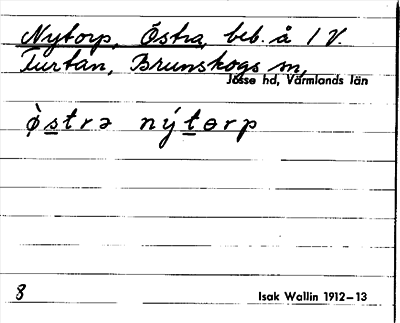 Nytorp, Östra, beb. å 1 V.
Turtan, Brunskogs sn,
Jösse hd, Värmlands län
ø̀strə nýtɵrp
8
Isak Wallin 1912–13